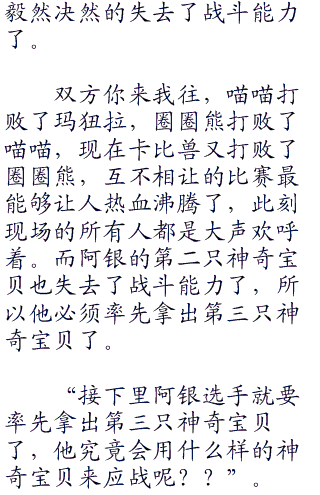 毅然决然的失去了战斗能力
了。
双方你来我往，喵喵打
败了玛狃拉，圈圈熊打败了
喵喵，现在卡比兽又打败了
圈圈熊，互不相让的比赛最
能够让人热血沸腾了，此刻
现场的所有人都是大声欢呼
着。而阿银的第二只神奇宝
贝也失去了战斗能力了，所
以他必须率先拿出第三只神
奇宝贝了。
“接下里阿银选手就要
率先拿出第三只神奇宝贝
了，他究竟会用什么样的神
奇宝贝来应战呢？？”。